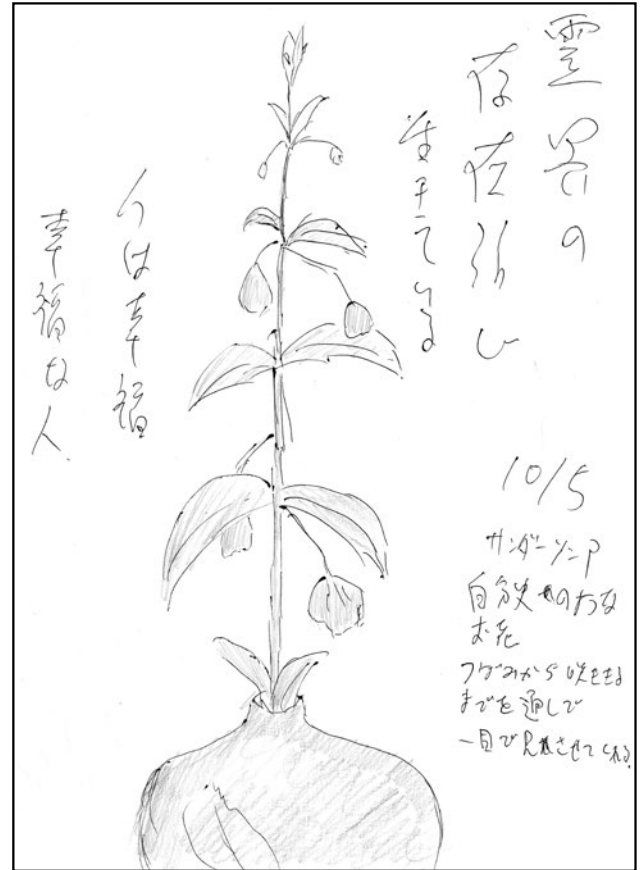 霊界の
存在私し
生きている
人は幸福
幸福な人
10/5
サンダーソニア
自分史のような
お花
つぼみから咲きる
までを通して
一目で見させてくれる